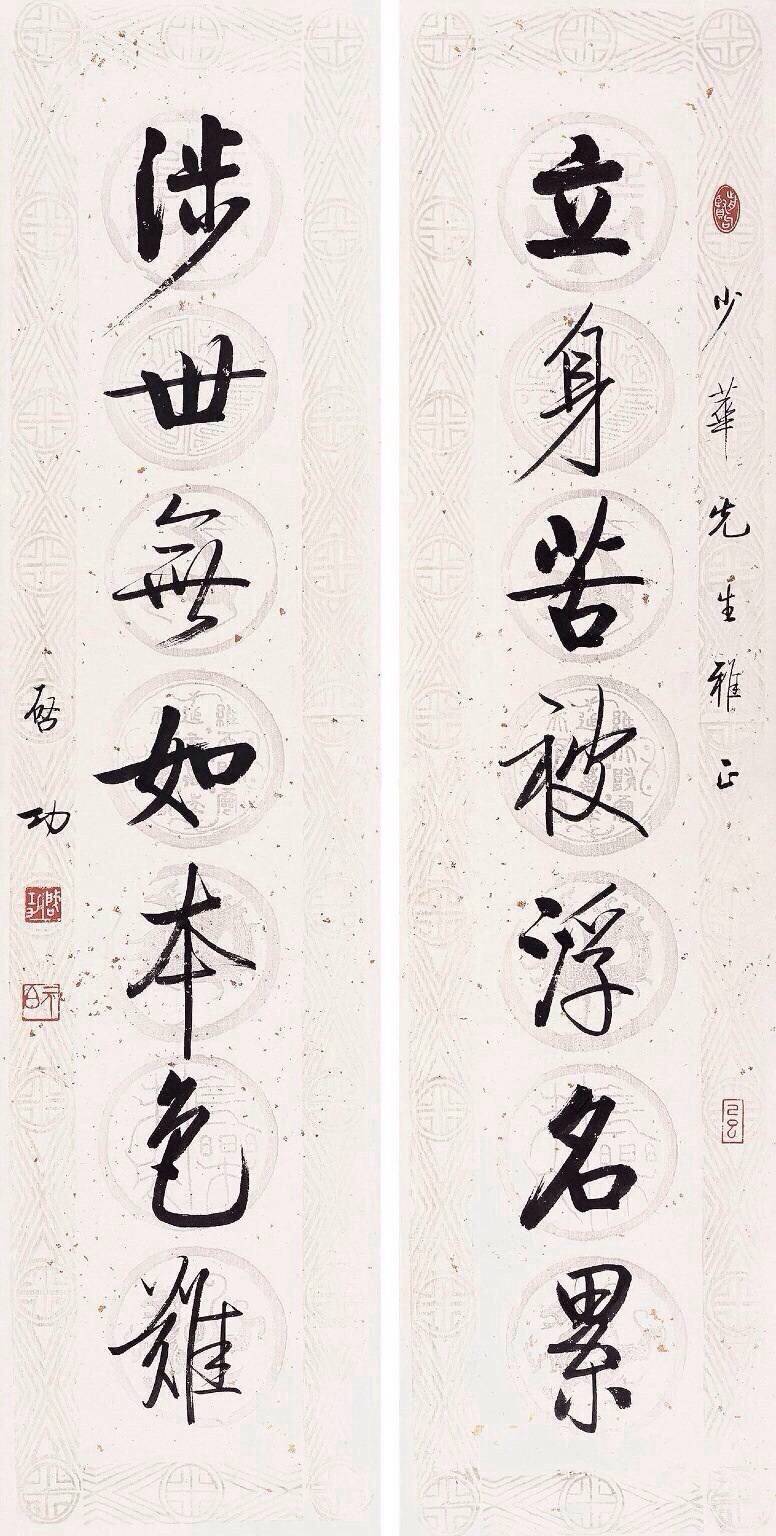 少華先生雅正
立身苦被浮名累
涉世無如本色難
啓功